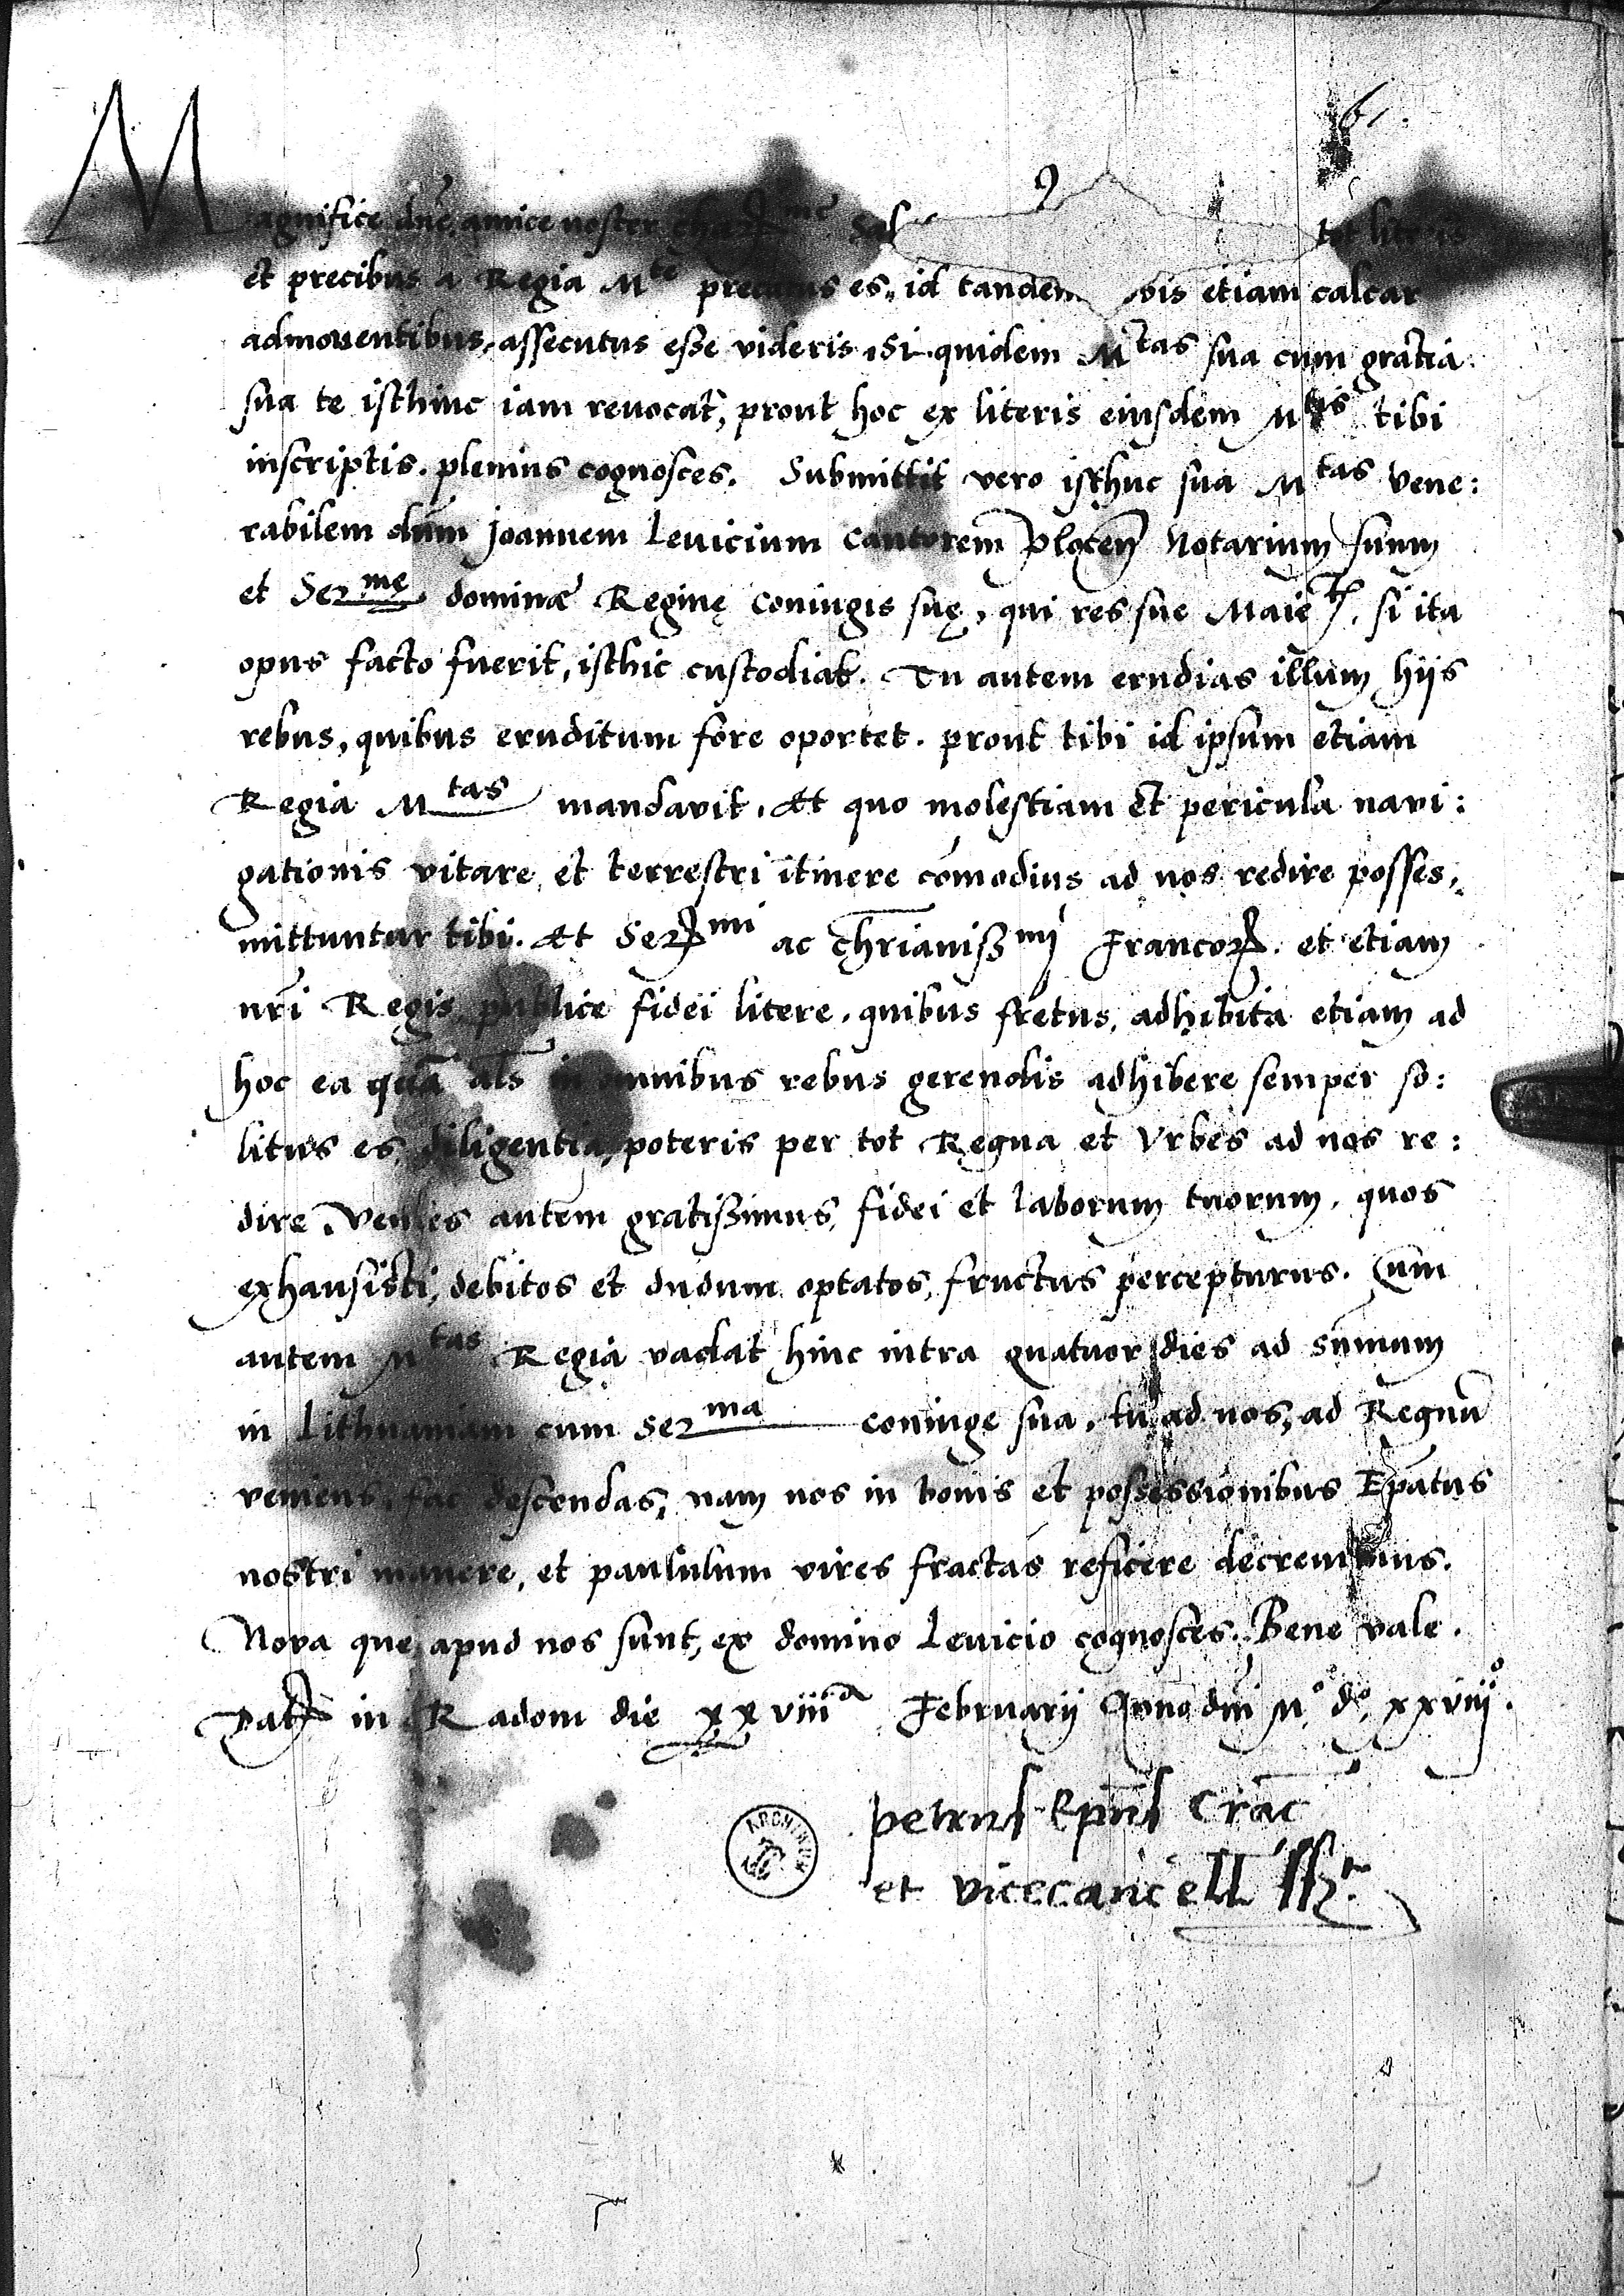 61.
Magnifice dne, amice noster char^me Sal tot literis
et precibus a Regia M^te precatus es, id tandem etiam calcar
admouentibus, assecutus esse videris. Si quidem M^tas sua cum gratia
sua te isthinc iam reuocat, prout hoc ex literis eiusdem M^tis tibi
inscriptis. plenius cognosces. Submittit vero isthuc sua M^tas Vene:
rabilem dnm Joannem Leuicium Cantorem Plocen Notarium suum
et Ser^mę dominæ Reginę Coniugis suę, qui res sue Maie^t. si ita
opus facto fuerit, isthic custodiat. Tu autem erudias illum hijs
rebus, quibus eruditum fore oportet. prout tibi id ipsum etiam
Regia M^tas mandavit. At quo molestiam et pericula navi:
gationis vitare, et terrestri itinere comodius ad nos redire posses,
mittuntur tibi. et Ser^mi ac Chrianiss^mi Francor. et etiam
nri Regis, publice fidei litere. quibus fretus, adhibita etiam ad
hoc ea qua als in omnibus rebus gerendis adhibere semper so:
litus es, diligentia, poteris per tot Regna et Vrbes ad nos re:
dire. Venies autem gratissimus, fidei et laborum tuorum, quos
exhausisti, debitos et dudum optatos, fructus percepturus. Cum
autem M^tas Regia vadat hinc intra quatuor dies ad summum
in Lithuaniam cum Ser^ma coniuge sua, tu ad nos, ad Regnu
veniens, fac descendas, nam nos in bonis et possessionibus Epatus
nostri manere, et paululum vires fractas reficere decreuimus.
Nova que apud nos sunt, ex domino Leuicio cognosces. Bene vale.
Dat in Radom die xxviii^a Februarij Anno dni M^o d^o xxviij^o.
petrus Epus Crac
et vicecancell sst
ARCHIWUM